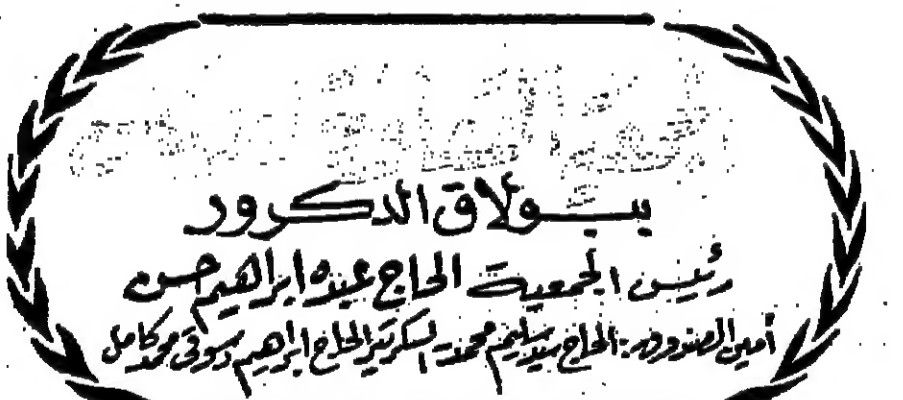 الجمعية
ببولاق الدكرور
رئيس الجمعية الحاج عبده ابراهيم حسن
أمين الصندوق: الحاج سيد سليم محمد السكرتير الحاج ابراهيم دسوقى محمد كامل